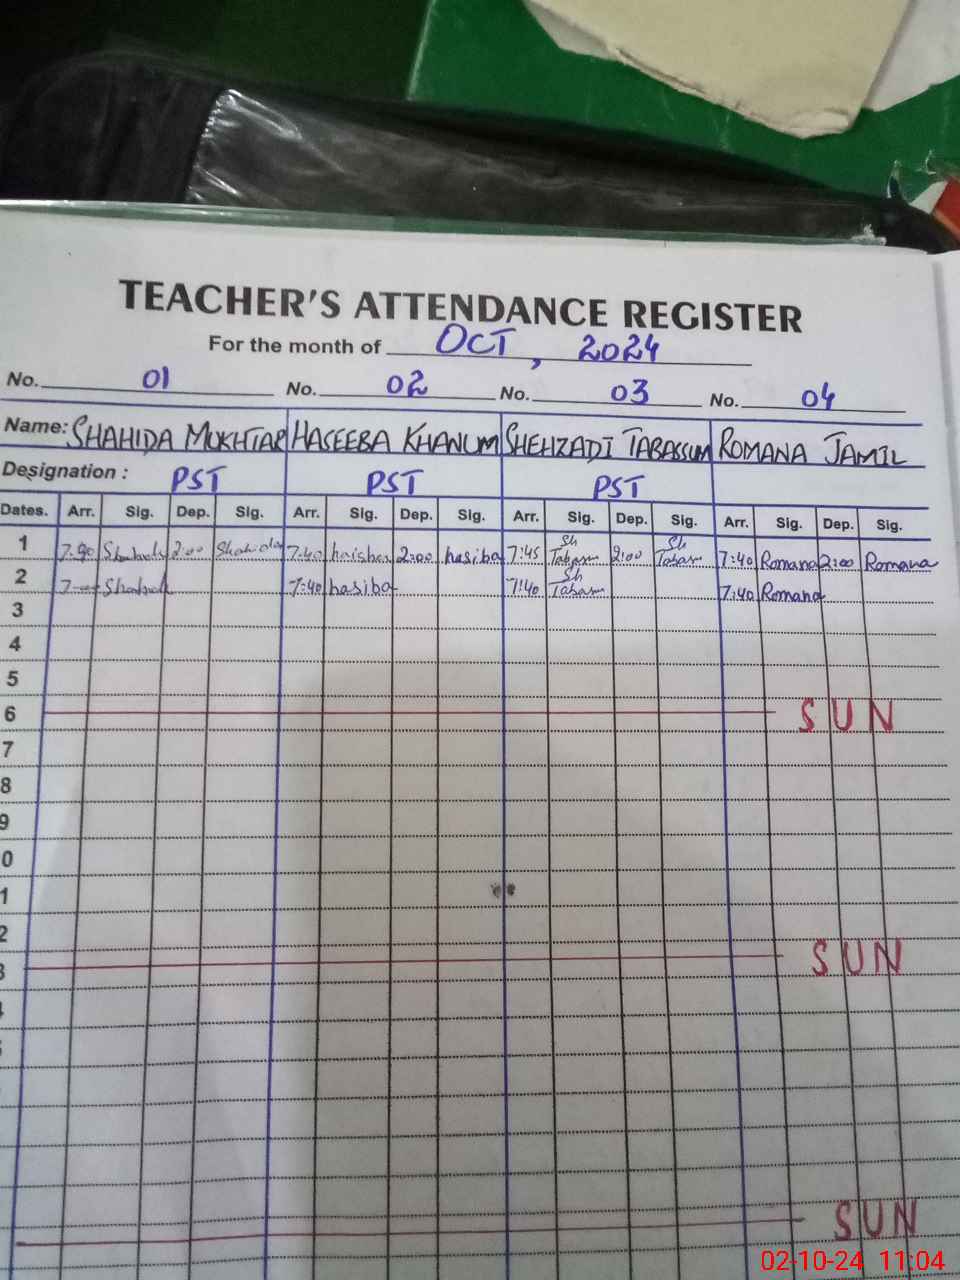 TEACHER'S ATTENDANCE REGISTER
For the month of OCT, 2024
No. 01 No. 02 No. 03 No. 04
Name: SHAHIDA MUKHTAR HASEEBA KHANUM SHEHZADI TABASSUM ROMANA JAMIL
Designation : PST PST PST
Dates. Arr. Sig. Dep. Sig. Arr. Sig. Dep. Sig. Arr. Sig. Dep. Sig. Arr. Sig. Dep. Sig.
1 2:00 Shahida 7:40 2:00 hasiba 7:45 Sh Tabasum 2:00 Sh Tabasum 7:40 Romana 2:00 Romana
2 7:40 hasiba 7:40 Sh Tabasum 7:40 Romana
3
4
5
6 SUN
7
8
9
0
1
2
3 SUN
SUN
02-10-24 11:04